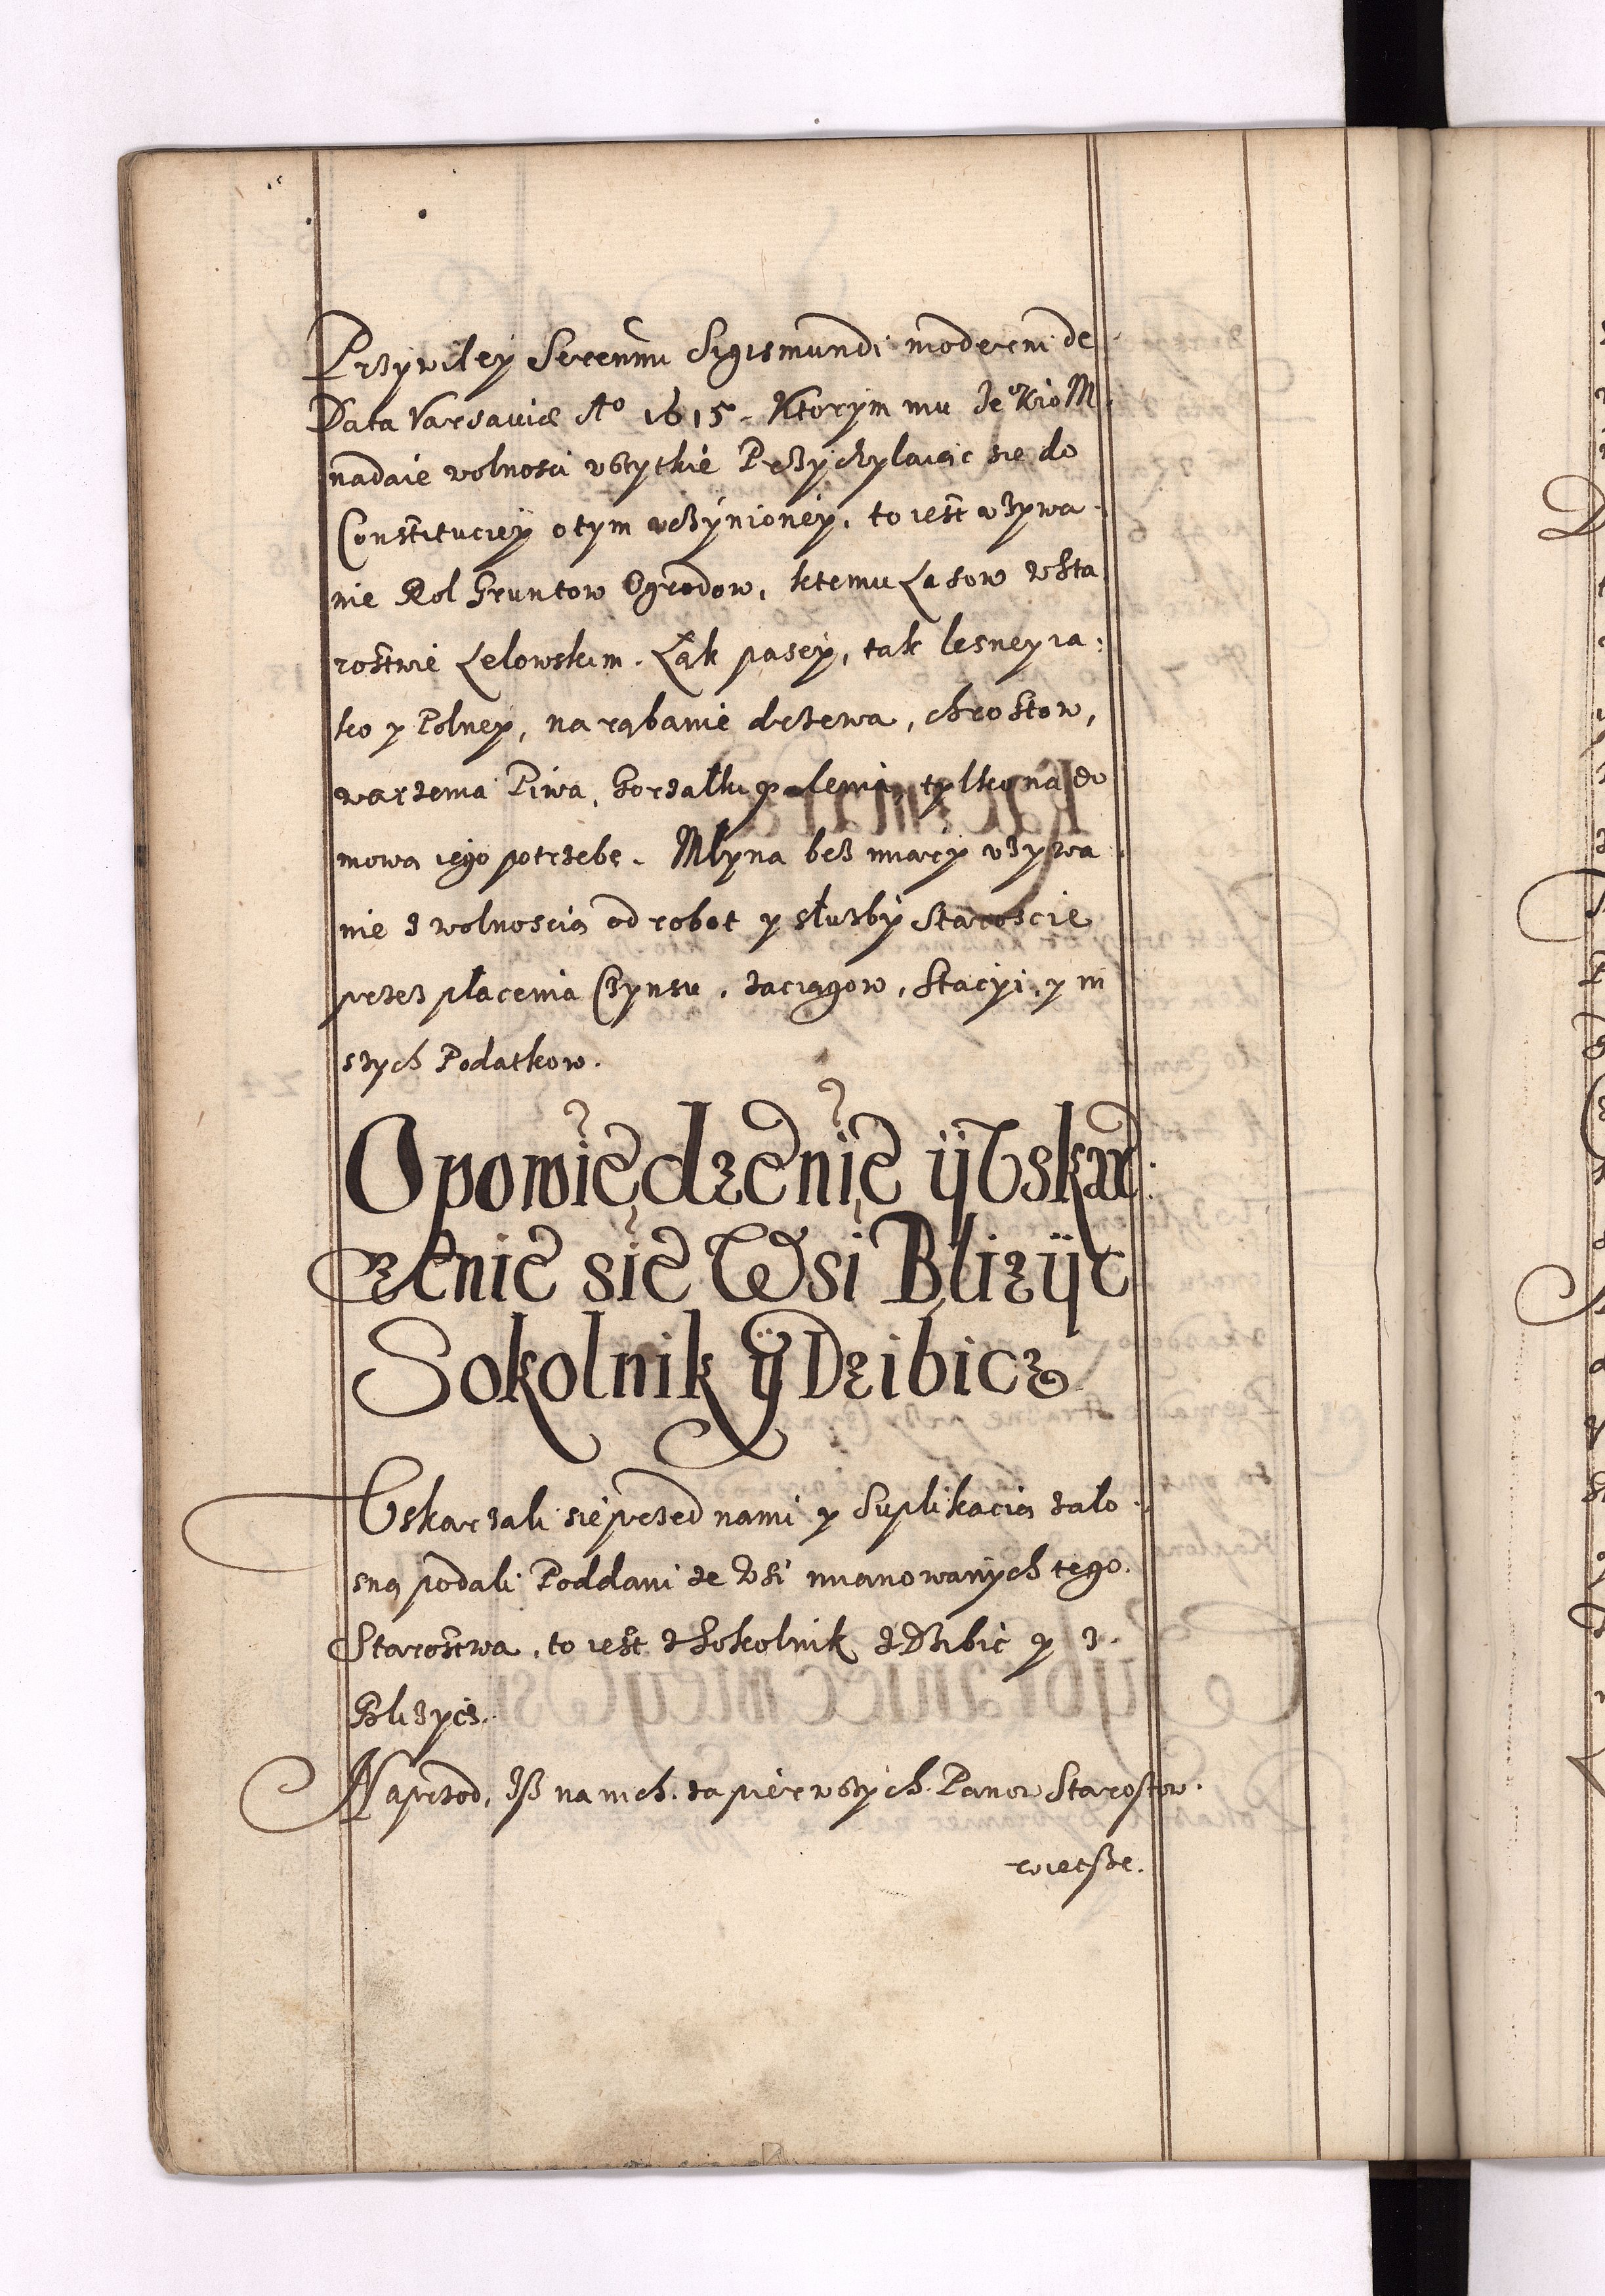 Przywiley Serenmi Sigismundi moderni de
Data Varsauiæ Ao 1615. Ktorym mu Je° Kro M
nadaie wolnosci wszytkie Przychylaiąc sie do
Constituciey o tym uczynioney, to iest używa
nie Rol Gruntow Ogrodow, ktemu Lasow w Sta
rostwie Lelowskim. Łąk pasey, tak lesney ia:
ko y Polney, na rąbanie drzewa, chrostow,
warzenia Piwa, Gorzałki palenia, tylko na do
mową iego potrzebę. Młyna bez miary używa
nie z wolnoscią od robot y służby Staroscie
przez płacenia Czynsu, zaciągow, Stacyi, y in
szych Podatkow.
Opowiedzenie ÿ Uskar:
zenie sie Wsi Bliżÿc
Sokolnik ÿ Dzibicz
Uskarzali sie przed nami y Suplikacią żało
sną podali Poddani ze Wsi mianowanych tego
Starostwa, to iest z Sokolnik z Dzibic y z
Bliżycz.
Naprzod, Iß na nich. za pierwszych Panow Starostow.
wietsze.